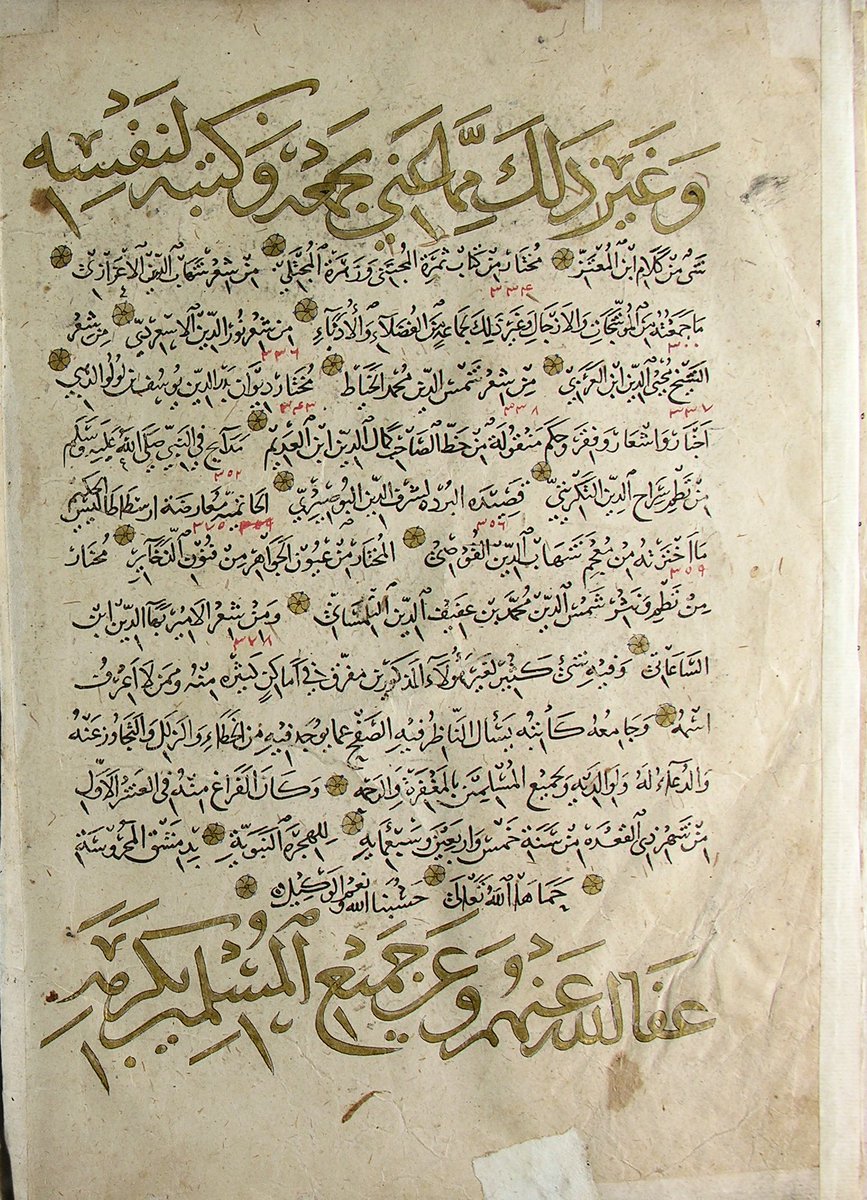 وغير ذلك مما اعتنى بجمعه وكتبه لنفسه
شئ من كلام ابن المعتز مختار من كتاب ثمرة المجتنى وزهرة المجتلى من شعر شهاب الدين الاعزازي
٣٣٤
ما جمعته من الموشحات والازجال وغير ذلك لجماعة من الفضلاء والأدباء من شعر نور الدين الاسعردي من شعر
٣٣٦
الشيخ محيي الدين ابن العربي من شعر شمس الدين محمد الخياط مختار ديوان بدر الدين يوسف ابن لولو الذهبي
٣٣٧ ٣٣٨ ٣٤٣
اخبار واشعار وفقر وحكم منقولة من خط الصاحب كمال الدين ابن العديم مدايح في النبي صلى الله عليه وسلم
٣٥٢
من نظم سراج الدين قصيدة البردة لشرف الدين البوصيري الحاتمية معارضة ارسطاطاليس الحكيم
٣٥٦ ٣٧٥
ما اخترته من معجم شهاب الدين القوصي المختار من عيون الجواهر من فنون مختار
٣٥٩
من نظم ونثر شمس الدين محمد بن عفيف الدين التلمساني ومن شعر الامير بهاء الدين ابن
٣٧٨
الساعاتي وفيه شئ كثير لغير هؤلاء المذكورين مفرق في اماكن كثيرة منه وممن لا اعرف
اسمه وجامعه كاتبه يسأل الناظر فيه الصفح عما يوجد فيه من الخطاء والزلل والتجاوز عنه
والدعاء له ولوالديه ولجميع المسلمين بالمغفرة والرحمة وكان الفراغ منه في العشر الاول
من شهر ذي القعدة من سنة خمس واربعين وسبعمايه للهجرة النبوية بدمشق المحروسة
حماها الله تعالى حسبنا الله ونعم الوكيل
عفا الله عنهم وعن جميع المسلمين بكرمه